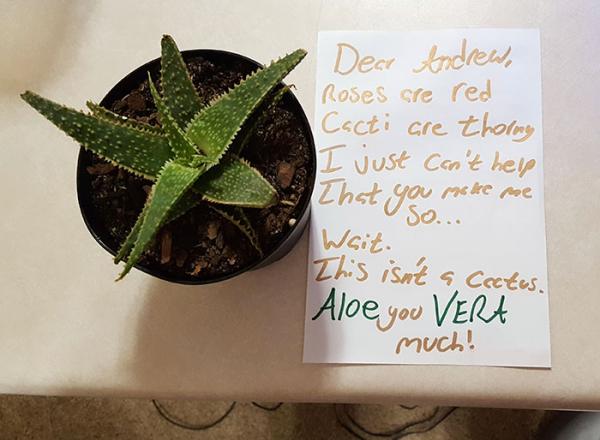 Dear Andrew,
Roses are red
Cacti are thorny
I just can't help
That you make me
so...
Wait.
This isn't a cactus.
Aloe you VERA
much!